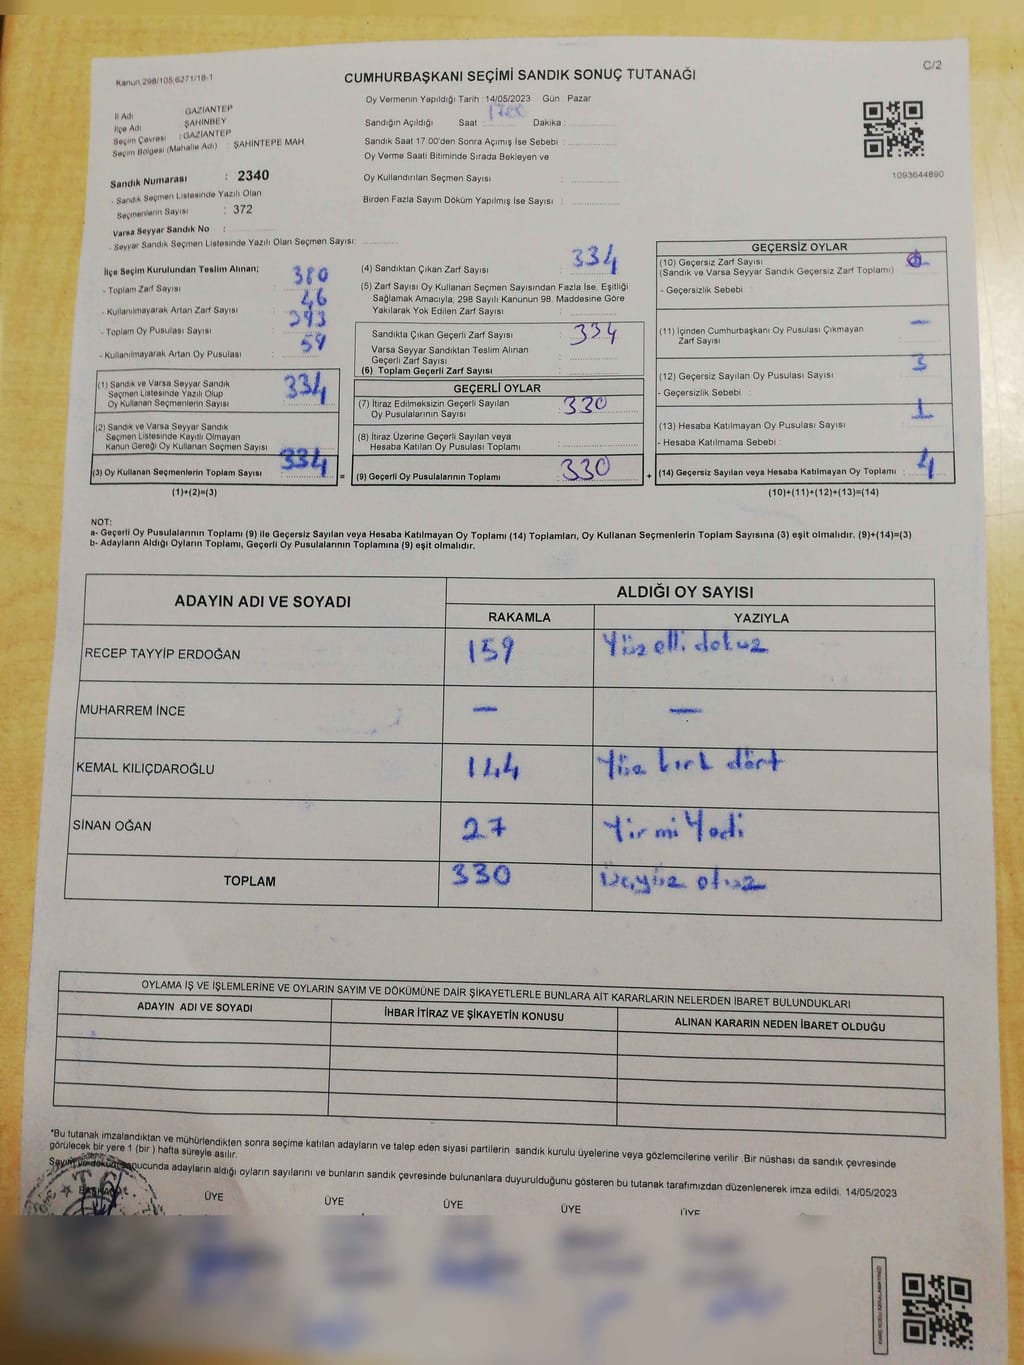 Kanun 298/105,6271/18-1
CUMHURBAŞKANI SEÇİMİ SANDIK SONUÇ TUTANAĞI
C/2
Oy Vermenin Yapıldığı Tarih : 14/05/2023 Gün : Pazar
İl Adı : GAZİANTEP
İlçe Adı : ŞAHİNBEY
Seçim Çevresi : GAZİANTEP
Seçim Bölgesi (Mahalle Adı) : ŞAHİNTEPE MAH
Sandığın Açıldığı Saat : 1700 Dakika :
Sandık Saat 17:00'den Sonra Açımış İse Sebebi :
Oy Verme Saati Bitiminde Sırada Bekleyen ve
Oy Kullandırılan Seçmen Sayısı :
Birden Fazla Sayım Döküm Yapılmış İse Sayısı :
1093644890
Sandık Numarası : 2340
- Sandık Seçmen Listesinde Yazılı Olan
Seçmenlerin Sayısı : 372
Varsa Seyyar Sandık No :
- Seyyar Sandık Seçmen Listesinde Yazılı Olan Seçmen Sayısı:
İlçe Seçim Kurulundan Teslim Alınan;
- Toplam Zarf Sayısı : 380
- Kullanılmayarak Artan Zarf Sayısı : 46
- Toplam Oy Pusulası Sayısı : 393
- Kullanılmayarak Artan Oy Pusulası : 59
(1) Sandık ve Varsa Seyyar Sandık
Seçmen Listesinde Yazılı Olup
Oy Kullanan Seçmenlerin Sayısı : 334
(2) Sandık ve Varsa Seyyar Sandık
Seçmen Listesinde Kayıtlı Olmayan
Kanun Gereği Oy Kullanan Seçmen Sayısı :
(3) Oy Kullanan Seçmenlerin Toplam Sayısı : 334
(1)+(2)=(3)
(4) Sandıktan Çıkan Zarf Sayısı : 334
(5) Zarf Sayısı Oy Kullanan Seçmen Sayısından Fazla İse, Eşitliği
Sağlamak Amacıyla; 298 Sayılı Kanunun 98. Maddesine Göre
Yakılarak Yok Edilen Zarf Sayısı :
Sandıkta Çıkan Geçerli Zarf Sayısı : 334
Varsa Seyyar Sandıktan Teslim Alınan
Geçerli Zarf Sayısı
(6) Toplam Geçerli Zarf Sayısı :
GEÇERLİ OYLAR
(7) İtiraz Edilmeksizin Geçerli Sayılan
Oy Pusulalarının Sayısı : 330
(8) İtiraz Üzerine Geçerli Sayılan veya
Hesaba Katılan Oy Pusulası Toplamı :
= (9) Geçerli Oy Pusulalarının Toplamı : 330 +
GEÇERSİZ OYLAR
(10) Geçersiz Zarf Sayısı
(Sandık ve Varsa Seyyar Sandık Geçersiz Zarf Toplamı) :
- Geçersizlik Sebebi :
(11) İçinden Cumhurbaşkanı Oy Pusulası Çıkmayan
Zarf Sayısı : —
(12) Geçersiz Sayılan Oy Pusulası Sayısı : 3
- Geçersizlik Sebebi :
(13) Hesaba Katılmayan Oy Pusulası Sayısı : 1
- Hesaba Katılmama Sebebi :
(14) Geçersiz Sayılan veya Hesaba Katılmayan Oy Toplamı : 4
(10)+(11)+(12)+(13)=(14)
NOT:
a- Geçerli Oy Pusulalarının Toplamı (9) ile Geçersiz Sayılan veya Hesaba Katılmayan Oy Toplamı (14) Toplamları, Oy Kullanan Seçmenlerin Toplam Sayısına (3) eşit olmalıdır. (9)+(14)=(3)
b- Adayların Aldığı Oyların Toplamı, Geçerli Oy Pusulalarının Toplamına (9) eşit olmalıdır.
ADAYIN ADI VE SOYADI ALDIĞI OY SAYISI
RAKAMLA YAZIYLA
RECEP TAYYİP ERDOĞAN 159 Yüz elli dokuz
MUHARREM İNCE — —
KEMAL KILIÇDAROĞLU 144 Yüz kırk dört
SİNAN OĞAN 27 Yirmi Yedi
TOPLAM 330 Üçyüz otuz
OYLAMA İŞ VE İŞLEMLERİNE VE OYLARIN SAYIM VE DÖKÜMÜNE DAİR ŞİKAYETLERLE BUNLARA AİT KARARLARIN NELERDEN İBARET BULUNDUKLARI
ADAYIN ADI VE SOYADI İHBAR İTİRAZ VE ŞİKAYETİN KONUSU ALINAN KARARIN NEDEN İBARET OLDUĞU
*Bu tutanak imzalandıktan ve mühürlendikten sonra seçime katılan adayların ve talep eden siyasi partilerin sandık kurulu üyelerine veya gözlemcilerine verilir. Bir nüshası da sandık çevresinde
görülecek bir yere 1 (bir ) hafta süreyle asılır.
Sayım ve döküm sonucunda adayların aldığı oyların sayılarını ve bunların sandık çevresinde bulunanlara duyurulduğunu gösteren bu tutanak tarafımızdan düzenlenerek imza edildi. 14/05/2023
BAŞKAN ÜYE ÜYE ÜYE ÜYE ÜYE